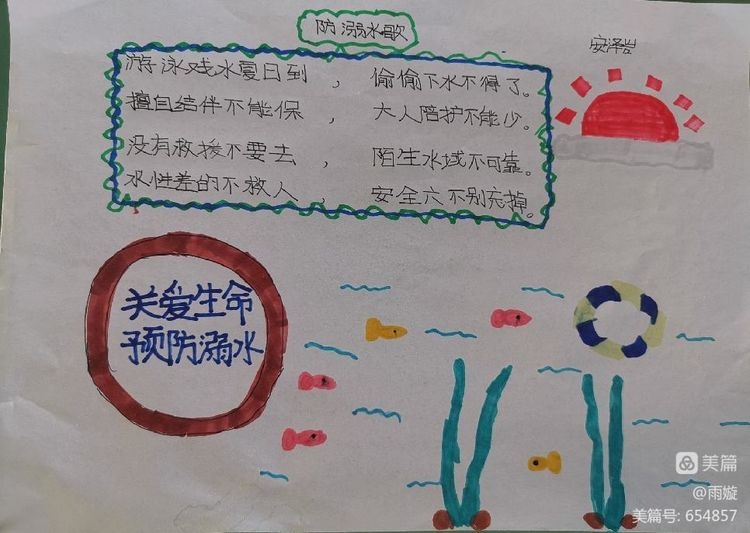 防溺水歌
安泽岩
游泳戏水夏日到，偷偷下水不得了。
擅自结伴不能保，大人陪护不能少。
没有救援不要去，陌生水域不可靠。
水性差的不救人，安全六不别忘掉。
关爱生命
预防溺水
美篇
@雨璇
美篇号: 654857